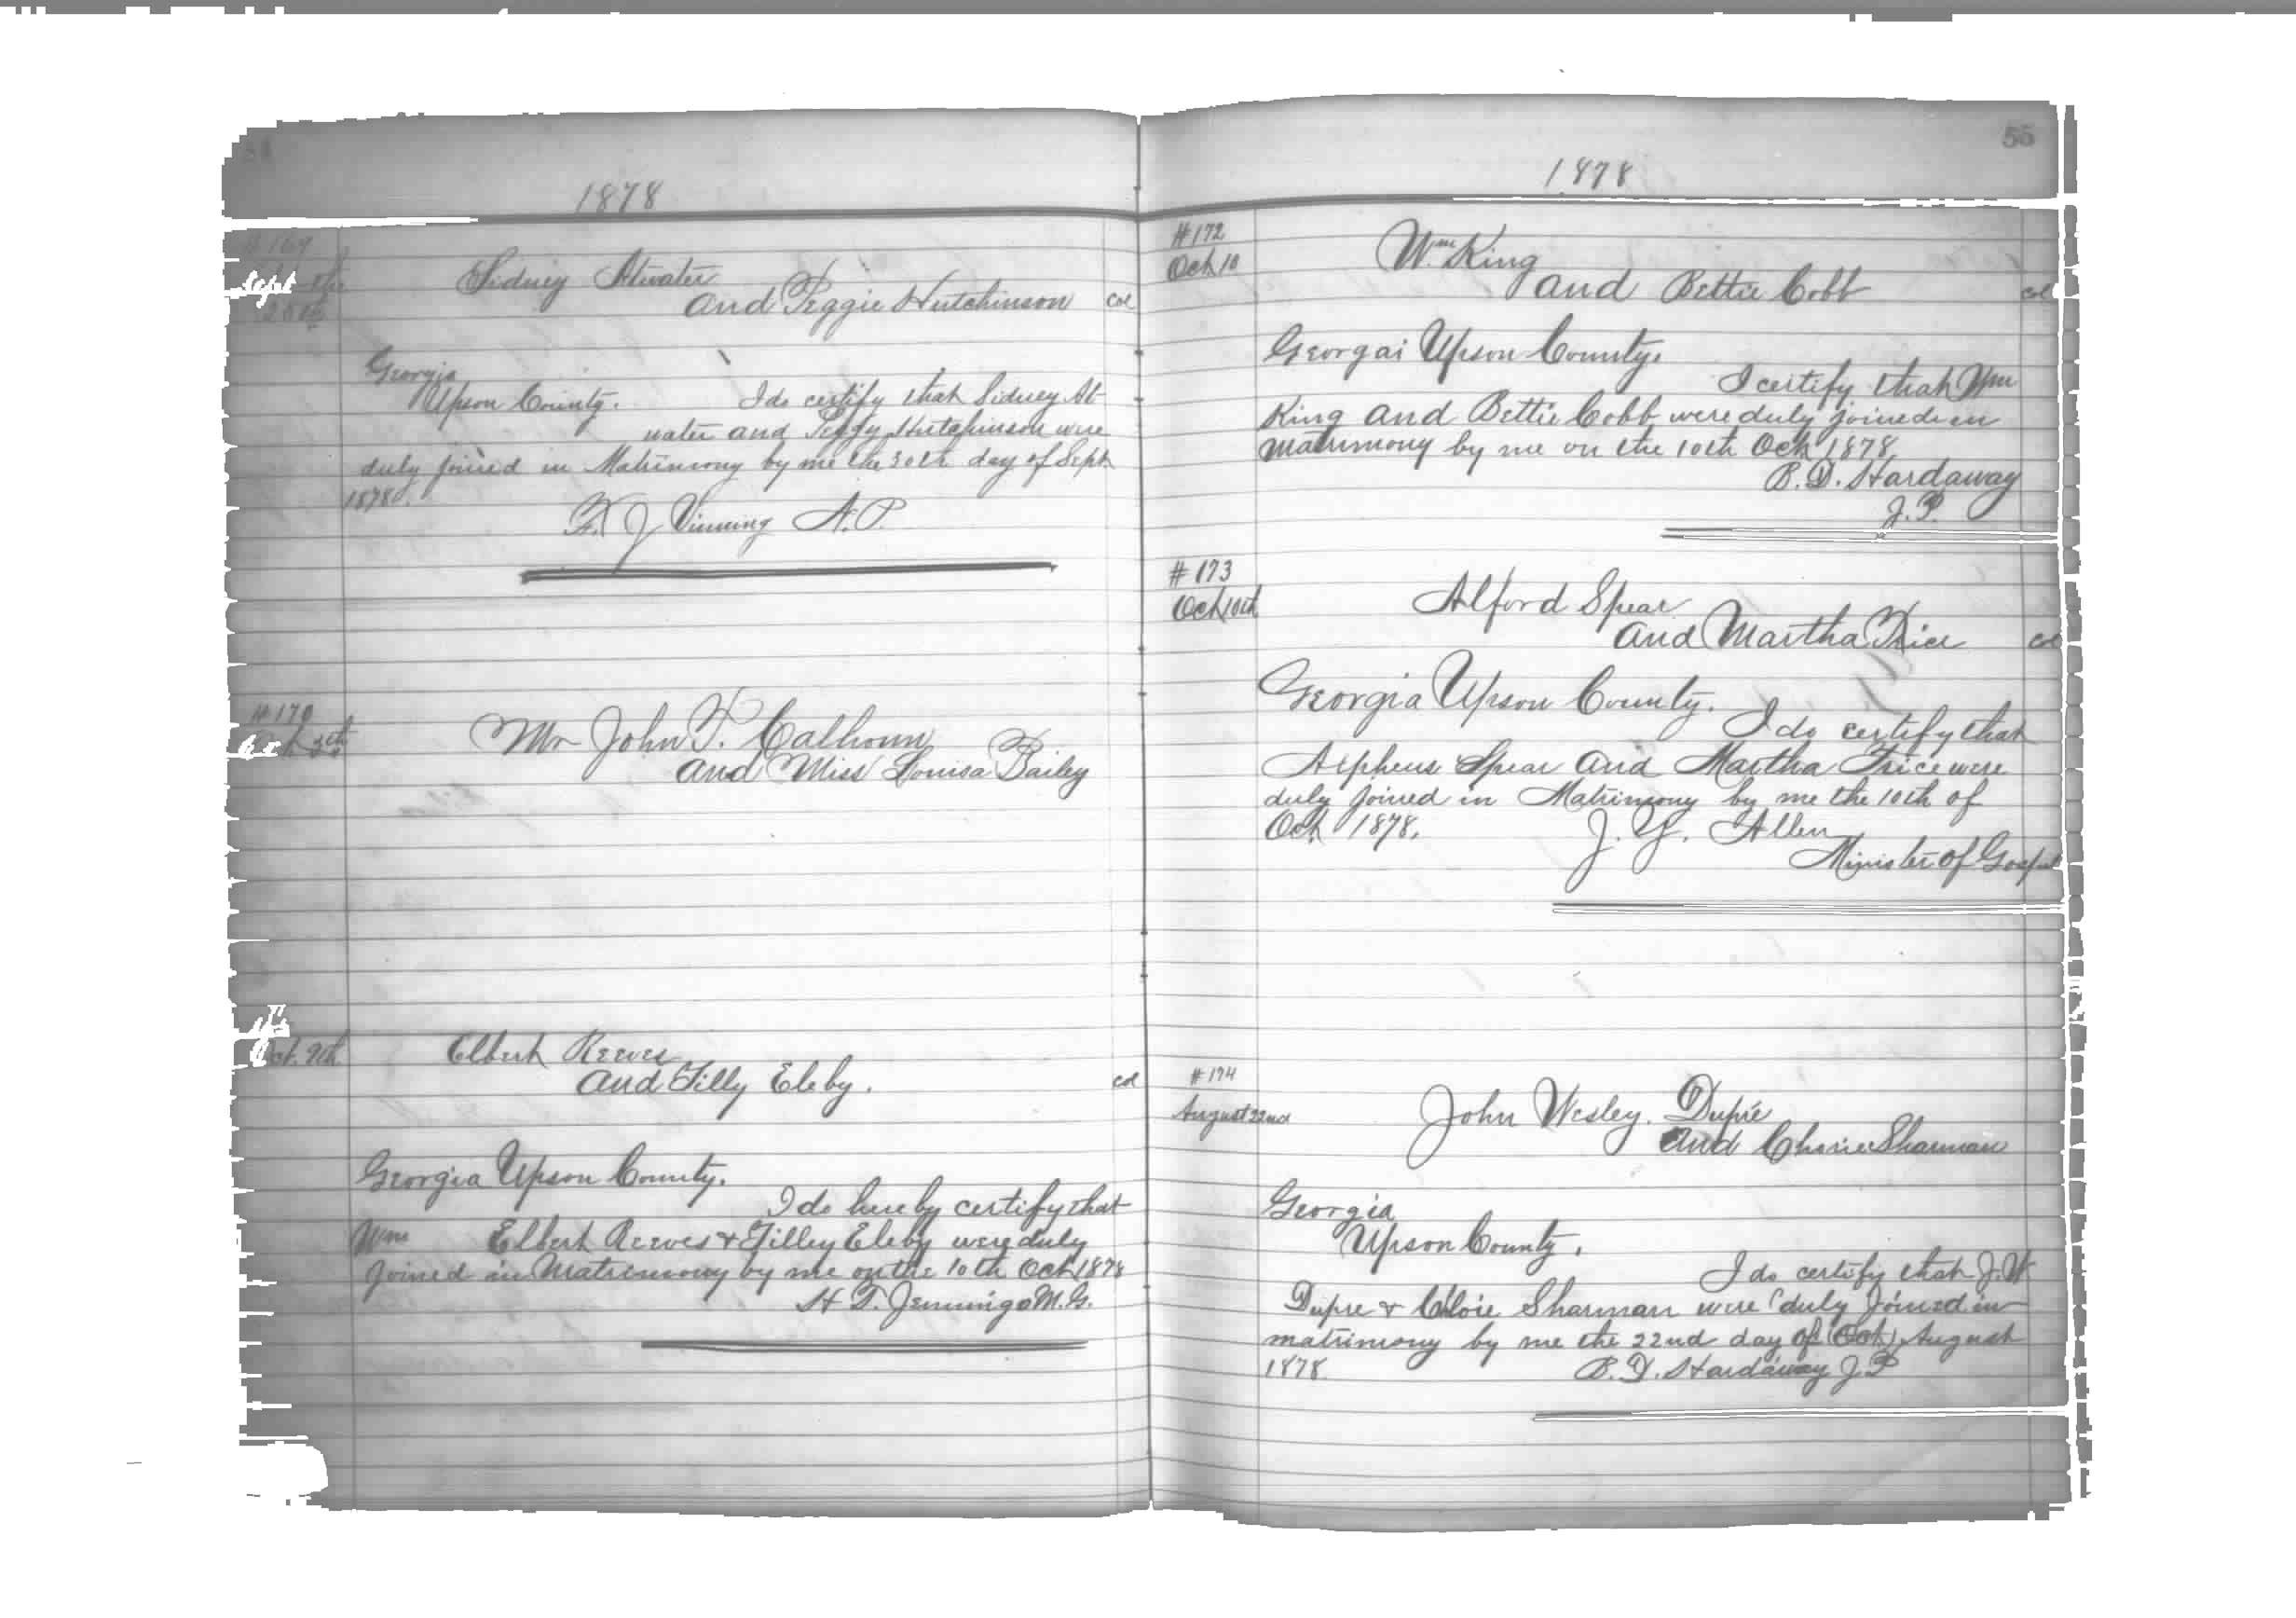 1878
#169
Sept the
Sidney Atwater
and Peggie Hutchinson col
Georgia
Upson County. I do certify that Sidney At-
water and Peggy Hutchinson were
duly joined in Matrimony by me the 30th day of Sept
1878.
F. J Vinning N.P.
#170
Mr John F. Calhoun
and Miss Louisa Bailey
Oct. 9th
Elbert Reeves
and Tilly Eleby. col
Georgia Upson County.
I do hereby certify that
Wm Elbert Reeves & Tilley Eleby were duly
joined in Matrimony by me on the 10th Oct 1878
H T. Jennings M.G.
55
1878
#172
Oct 10
Wm King
and Bettie Cobb col
Georgai Upson County.
I certify that Wm
King and Bettie Cobb were duly joined in
matrimony by me on the 10th Oct 1878
B. D. Hardaway
J. P.
#173
Oct 10th
Alford Spear
and Martha Trice col
Georgia Upson County.
I do certify that
Alpheus Spear and Martha Trice were
duly joined in Matrimony by me the 10th of
Oct 1878.
J. Y. Allen
Minister of Gospel
#174
August 22nd
John Wesley. Dupre
and Sharman
Georgia
Upson County.
I do certify that J. W
Dupre & Cloie Sharman were duly joined in
matrimony by me the 22nd day of (Oct) August
1878. B. D. Hardaway J. P